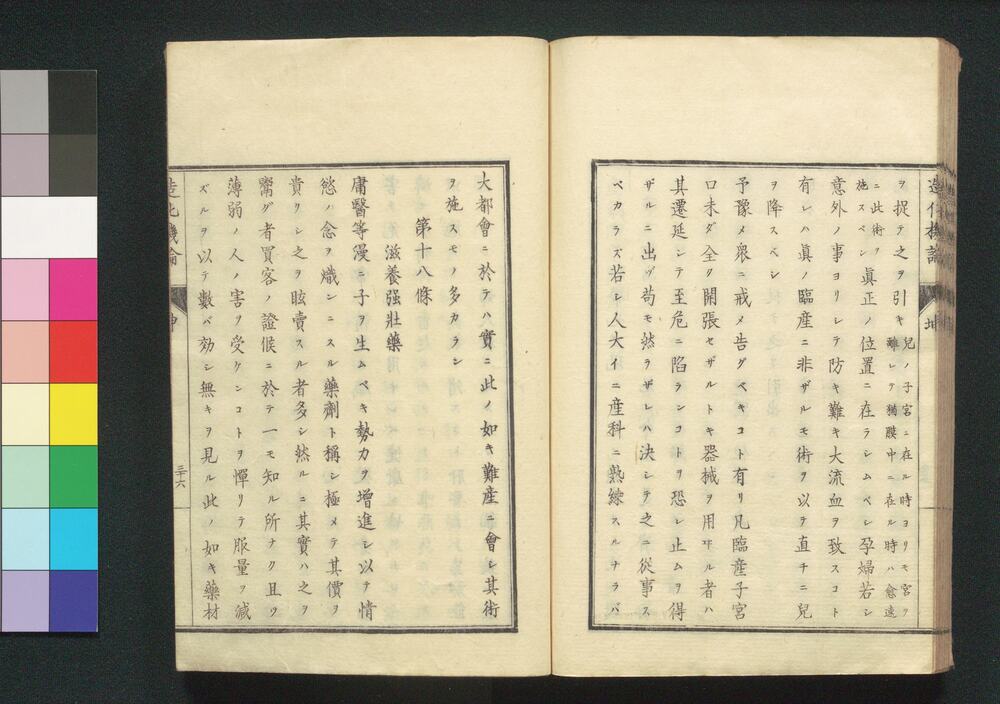 造化機論
坤
ヲ捉テ之ヲ引キ
兒ノ子宮ニ在ル時ヨリモ宮ヲ
離レテ獨膜中ニ在ル時ハ愈速
ニ此術ヲ
施スベシ
眞正ノ位置ニ在ラシムベシ孕婦若シ
意外ノ事ヨリシテ防キ難キ大流血ヲ致スコト
有レハ眞ノ臨産ニ非ザルモ術ヲ以テ直チニ兒
ヲ降スベシ
予豫メ衆ニ戒メ告グベキコト有リ凡臨産子宮
口未ダ全ク開張セザルトキ器械ヲ用ヰル者ハ
其遷延シテ至危ニ陷ランコトヲ恐レ止ムヲ得
ザルニ出ヅ苟モ然ラザレハ決シテ之ニ從事ス
ベカラズ若シ人大イニ産科ニ熟練スルナラバ
大都會ニ於テハ實ニ此ノ如キ難産ニ會シ其術
ヲ施スモノ多カラン
第十八條
滋養强壯藥
庸醫等漫ニ子ヲ生ムベキ勢力ヲ增進シ以テ情
慾ノ念ヲ熾ンニスル藥劑ト稱シ極メテ其價ヲ
貴クシ之ヲ眩賣スル者多シ然ルニ其實ハ之ヲ
鬻グ者買客ノ證候ニ於テ一モ知ル所ナク且ツ
薄弱ノ人ノ害ヲ受ケンコトヲ憚リテ服量ヲ減
ズルヲ以テ數バ効シ無キヲ見ル此ノ如キ藥材
造化機論
坤
三十六